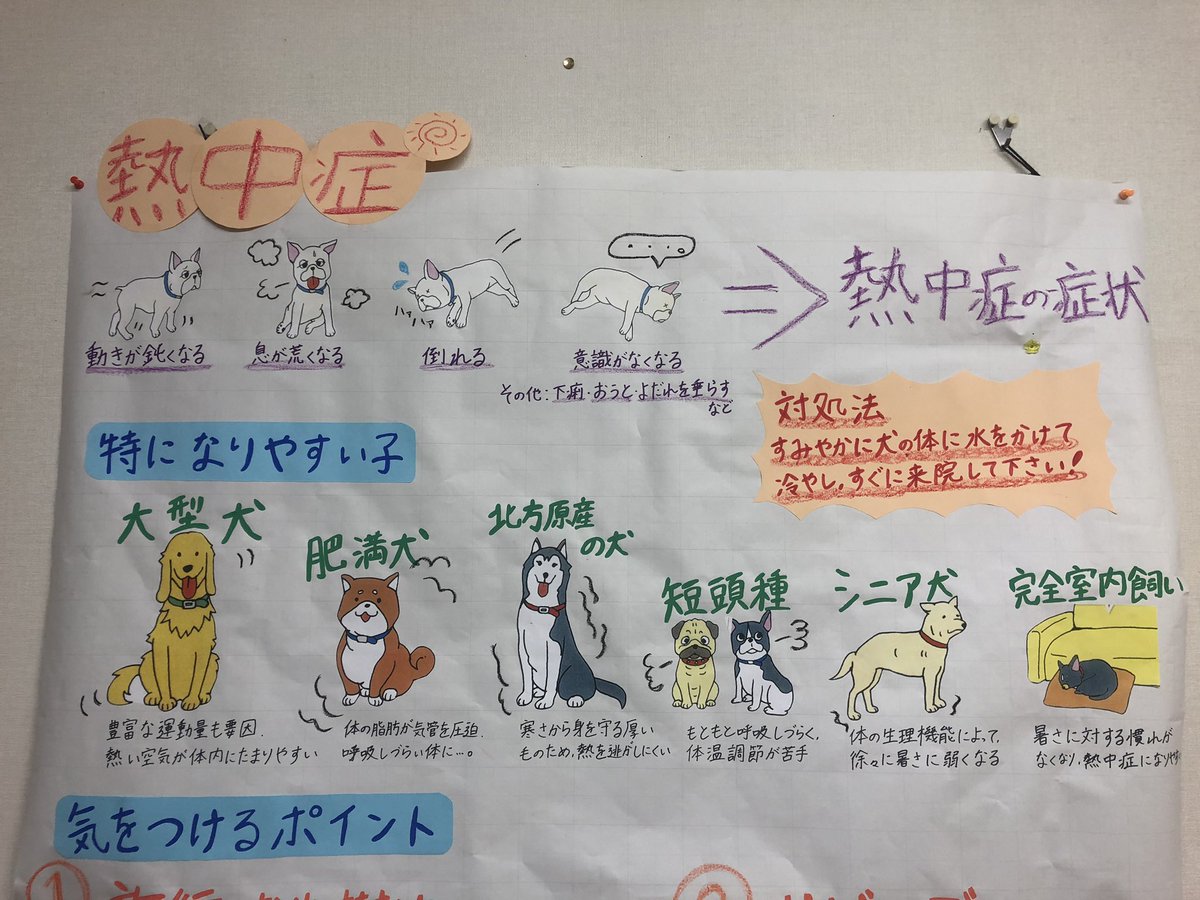 熱中症
動きが鈍くなる
息が荒くなる
ハァハァ
倒れる
意識がなくなる
その他:下痢・おうと・よだれを垂らす
など
⇒熱中症の症状
対処法
すみやかに犬の体に水をかけて
冷やし、すぐに来院して下さい!
特になりやすい子
大型犬
豊富な運動量も要因.
熱い空気が体内にたまりやすい
肥満犬
体の脂肪が気管を圧迫.
呼吸しづらい体に…。
北方原産
の犬
寒さから身を守る厚い
ものため、熱を逃がしにくい
短頭種
もともと呼吸しづらく、
体温調節が苦手
シニア犬
体の生理機能によって、
徐々に暑さに弱くなる
完全室内飼い
暑さに対する慣れが
なくなり、熱中症になりやす
気をつけるポイント
①
②